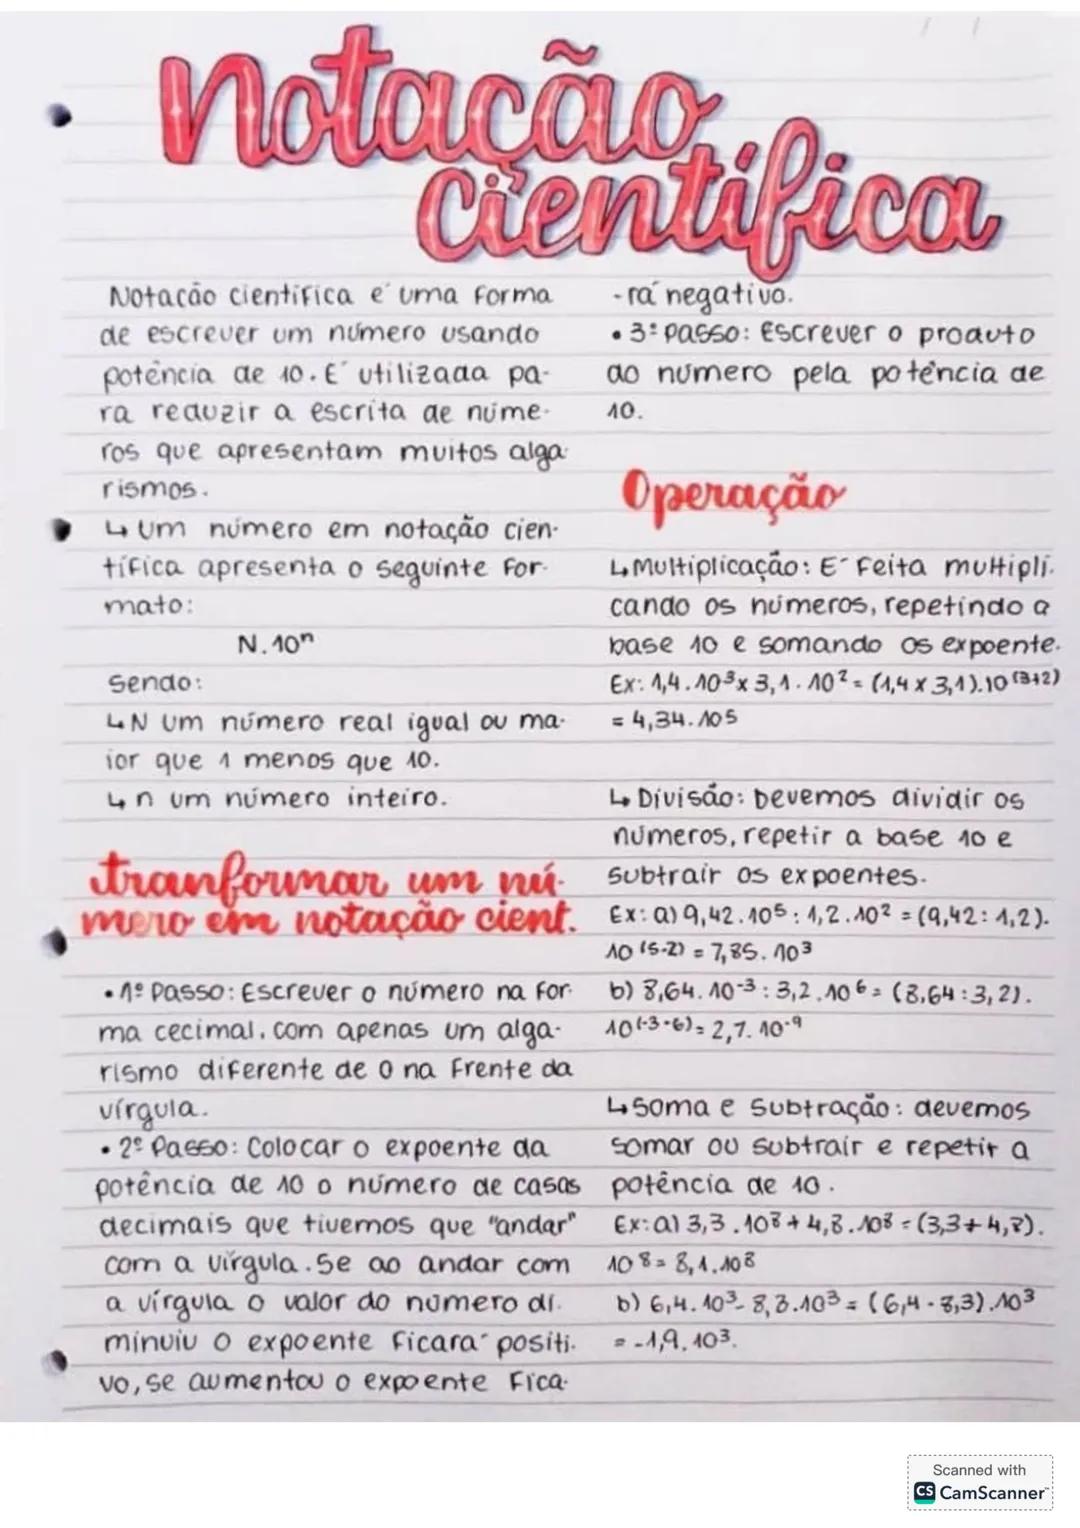 Notação
científica
Notacão cientifica é uma forma
de escrever um número usando
potência de 10. É utilizada pa-
ra reduzir a escrita de núme-
ros que apresentam muitos alga-
rismos.
↳ Um número em notação cien-
tífica apresenta o seguinte for-
mato:
N.10ⁿ
Sendo:
↳ N um número real igual ou ma-
ior que 1 menos que 10.
↳ n um número inteiro.
tranformar um nú-
mero em notação cient.
• 1º Passo: Escrever o número na for-
ma cecimal, com apenas um alga-
rismo diferente de 0 na frente da
vírgula.
• 2º Passo: Colocar o expoente da
potência de 10 o número de casas
decimais que tivemos que "andar"
com a vírgula. Se ao andar com
a vírgula o valor do número di-
minuiu o expoente ficará positi-
vo, se aumentou o expoente fica-
-rá negativo.
• 3º Passo: Escrever o produto
do número pela potência de
10.
Operação
↳ Multiplicação: É feita multipli-
cando os números, repetindo a
base 10 e somando os expoente.
Ex: 1,4.10³ x 3,1.10² = (1,4 x 3,1).10⁽³⁺²⁾
= 4,34.10⁵
↳ Divisão: Devemos dividir os
números, repetir a base 10 e
subtrair os expoentes.
Ex: a) 9,42.10⁵ : 1,2.10² = (9,42 : 1,2).
10⁽⁵⁻²⁾ = 7,85.10³
b) 8,64.10⁻³ : 3,2.10⁶ = (8,64 : 3,2).
10⁽⁻³⁻⁶⁾ = 2,7.10⁻⁹
↳ Soma e Subtração: devemos
somar ou subtrair e repetir a
potência de 10.
Ex: a) 3,3.10⁸ + 4,8.10⁸ = (3,3 + 4,8).
10⁸ = 8,1.10⁸
b) 6,4.10³ - 8,3.10³ = (6,4 - 8,3).10³
= -1,9.10³.
Scanned with
CS CamScanner